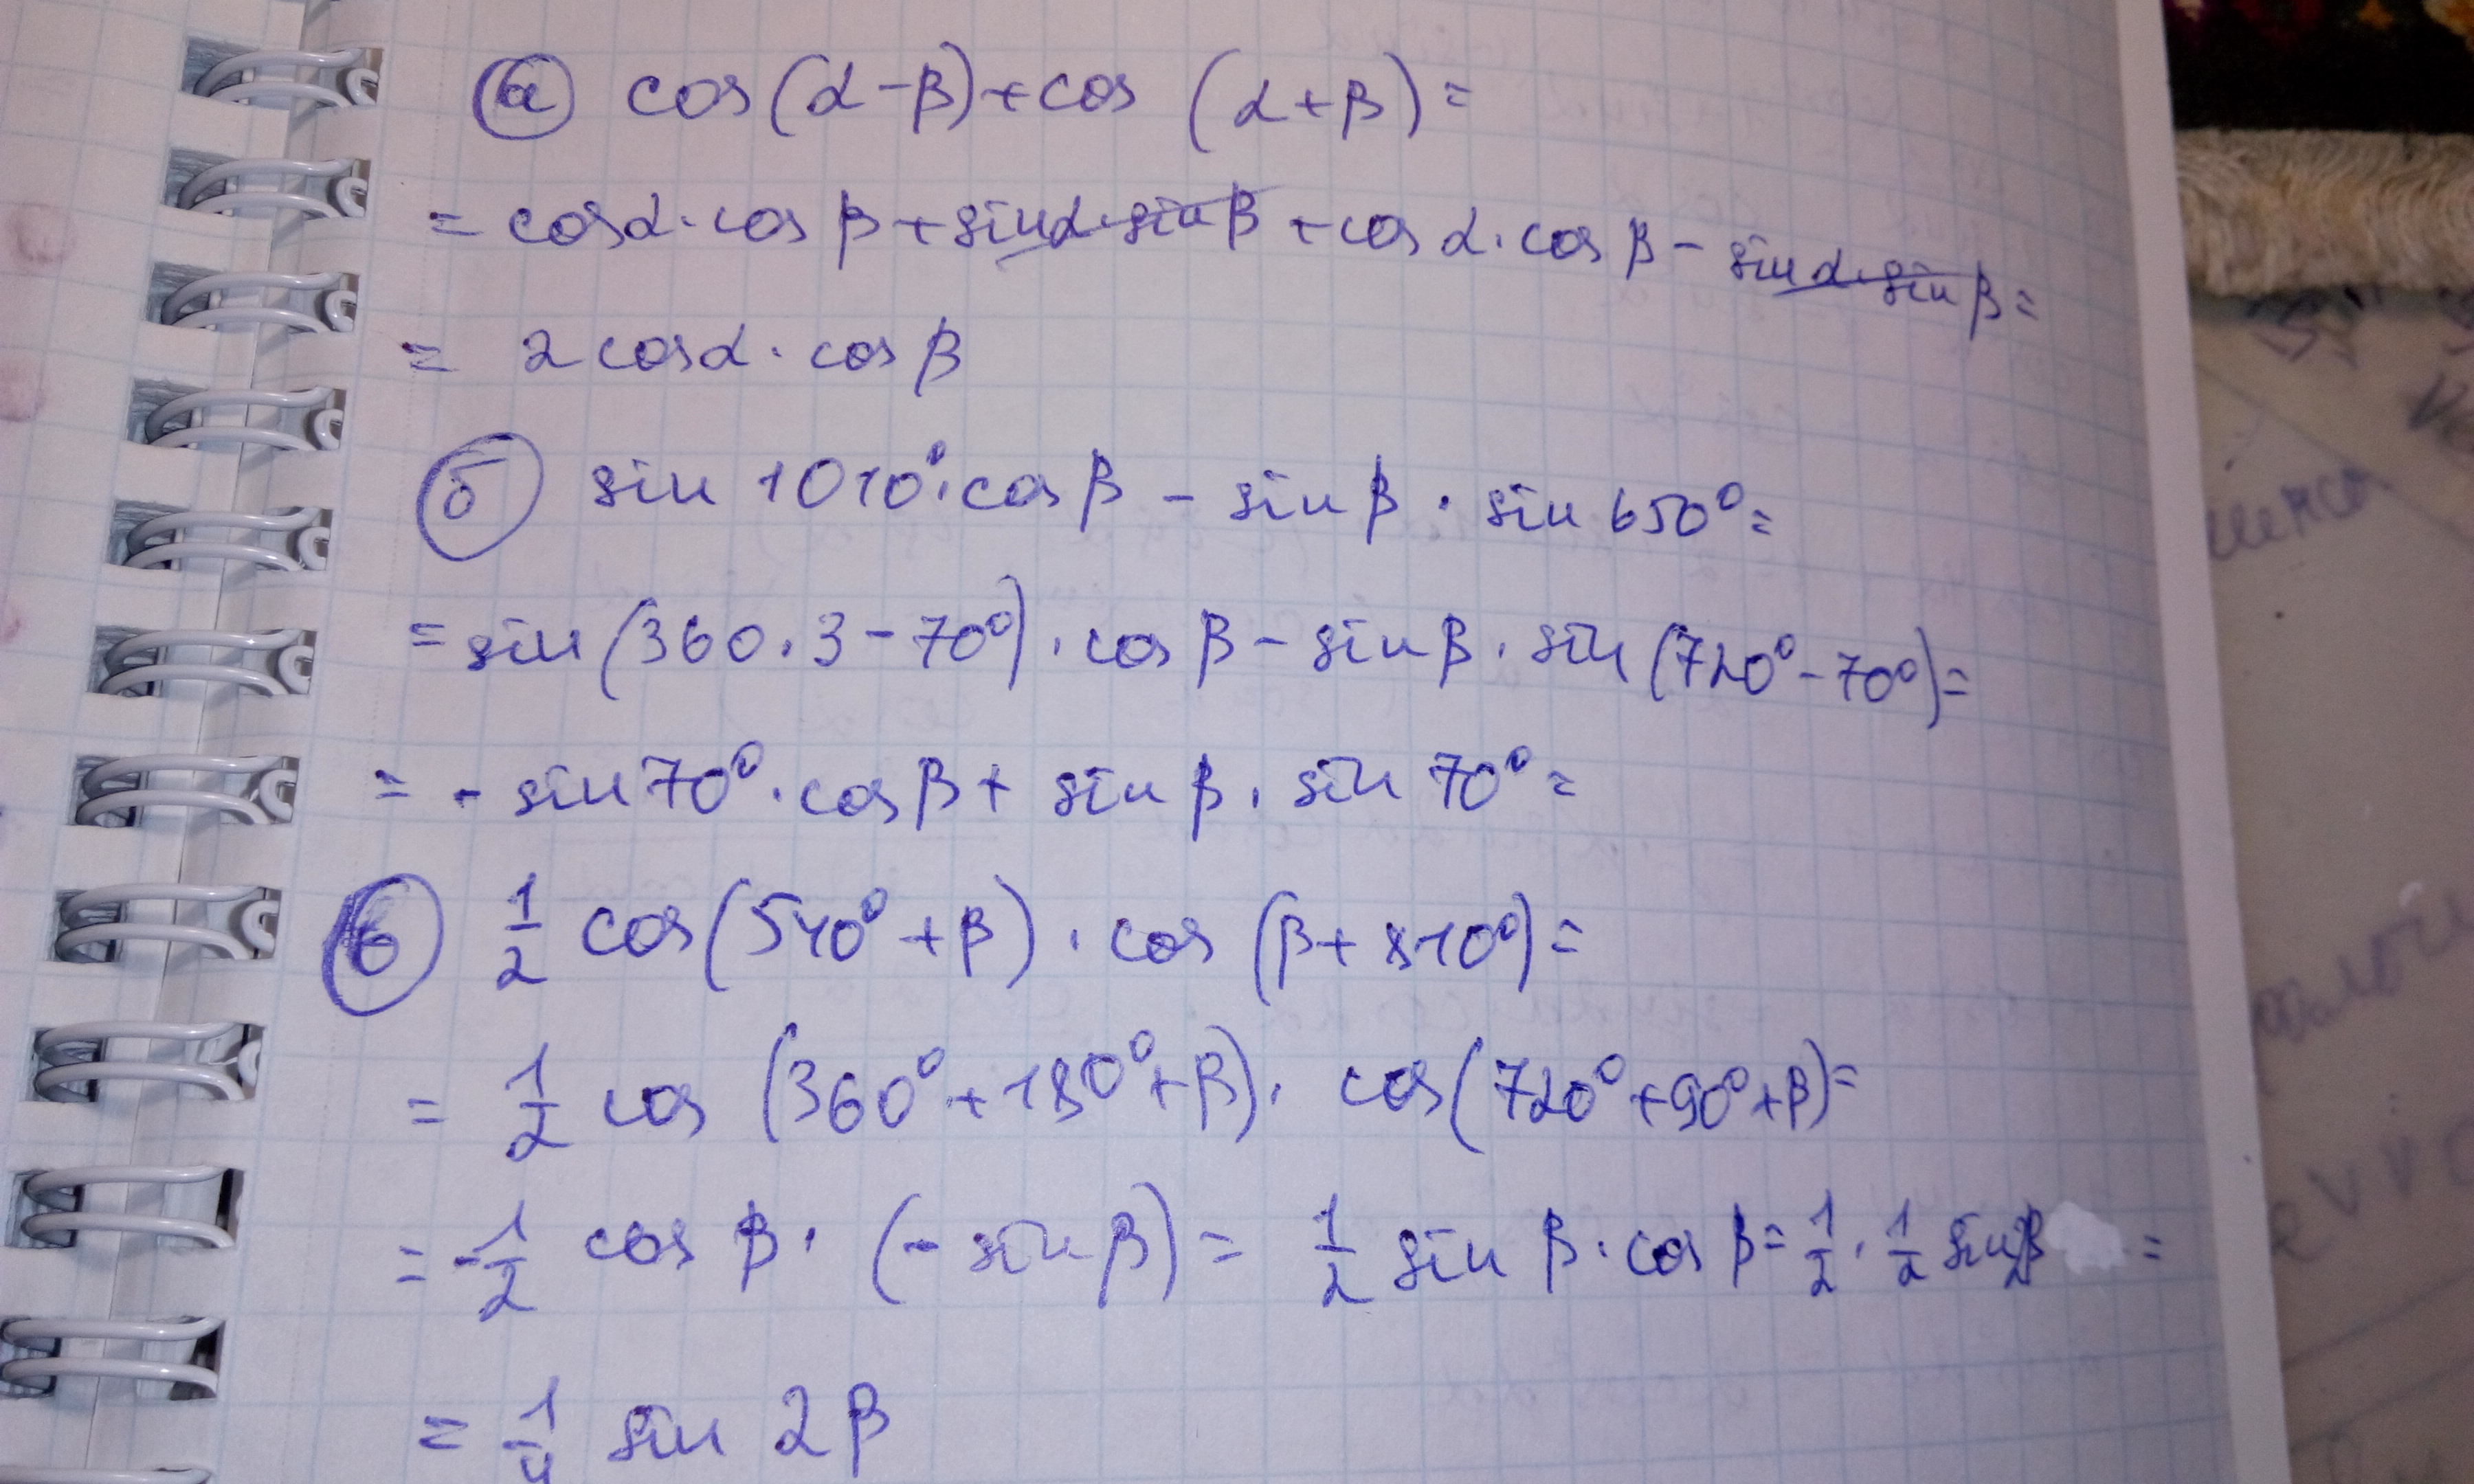 а) cos(α-β)+cos (α+β)=
= cosα·cos β+sinα·sin β+cos α·cos β-sin α·sin β=
= 2cosα·cos β
б) sin 1010°·cos β - sin β · sin 650°=
= sin(360·3-70°)·cos β-sin β·sin(720°-70°)=
= - sin 70°·cos β+ sin β·sin 70°=
в) 1/2 cos(540°+β)·cos(β+810°)=
= 1/2 cos (360°+180°+β)·cos(720°+90°+β)=
= -1/2 cos β·(-sin β)= 1/2 sin β·cos β= 1/2·1/2 sin2β =
= 1/4 sin 2β